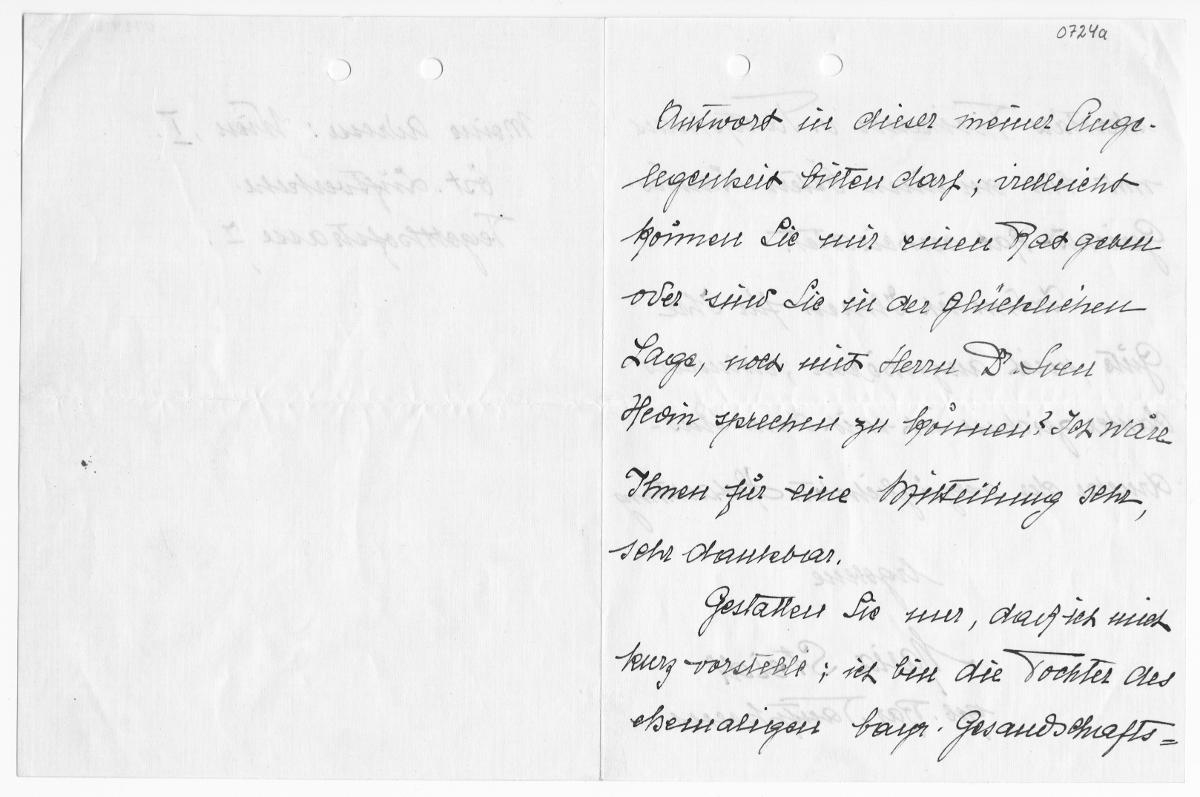 0724a
Antwort in dieser meiner Ange-
legenheit bitten darf; vielleicht
können Sie mir einen Rat geben
oder sind Sie in der glücklichen
Lage, noch mit Herrn Dr. Sven
Hedin sprechen zu können? Ich wäre
Ihnen für eine Mitteilung sehr,
sehr dankbar.
Gestatten Sie mir, daß ich mich
kurz vorstelle; ich bin die Tochter des
ehemaligen bayr. Gesandschafts=